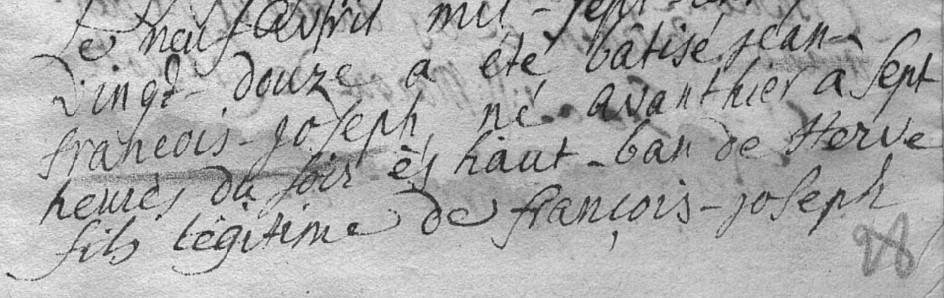 Le neuf avril mil-sept-cent
vingt-douze a été batisé jean-
francois-joseph, né avanthier a sept
heures du soir ès haut-ban de Herve
fils légitime de françois-joseph
28